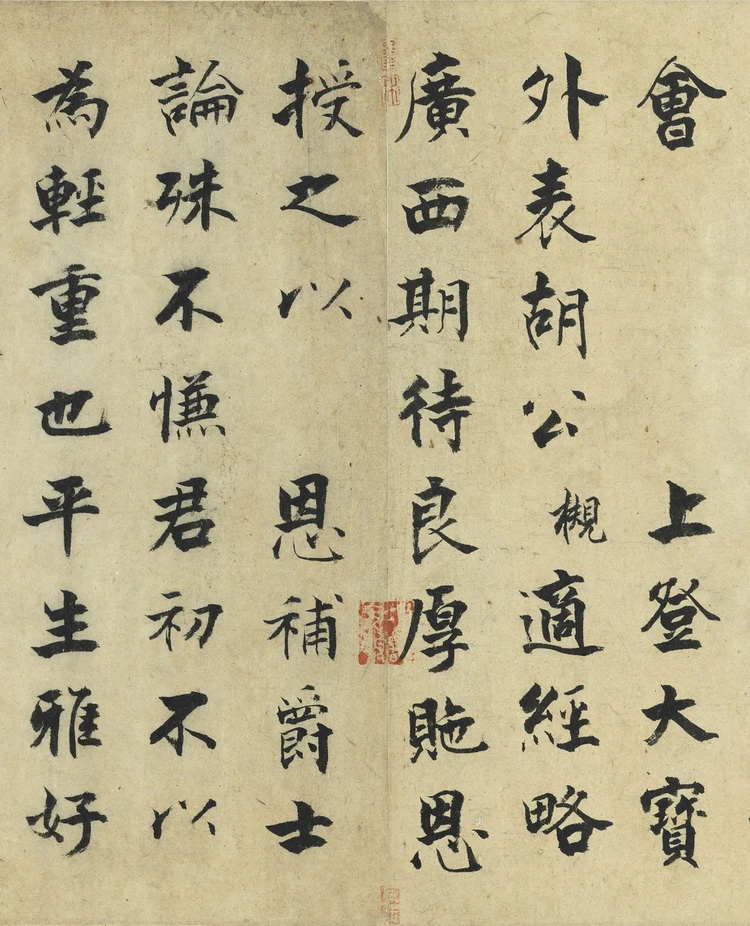 會 上登大寶
外表胡公槻適經略
廣西期待良厚貤恩
授之以 恩補爵士
論殊不慊君初不以
為輕重也平生雅好